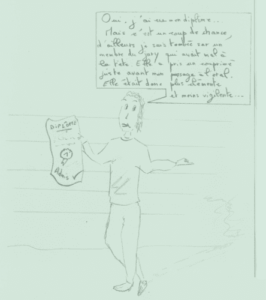 Oui, j'ai eu mon diplôme.
Mais c'est un coup de chance,
d'ailleurs je suis tombée sur un
membre du jury qui avait mal à
la tête. Elle a pris un comprimé
juste avant mon passage à l'oral.
Elle était donc plus clémente
et moins vigilante...
DIPLÔME